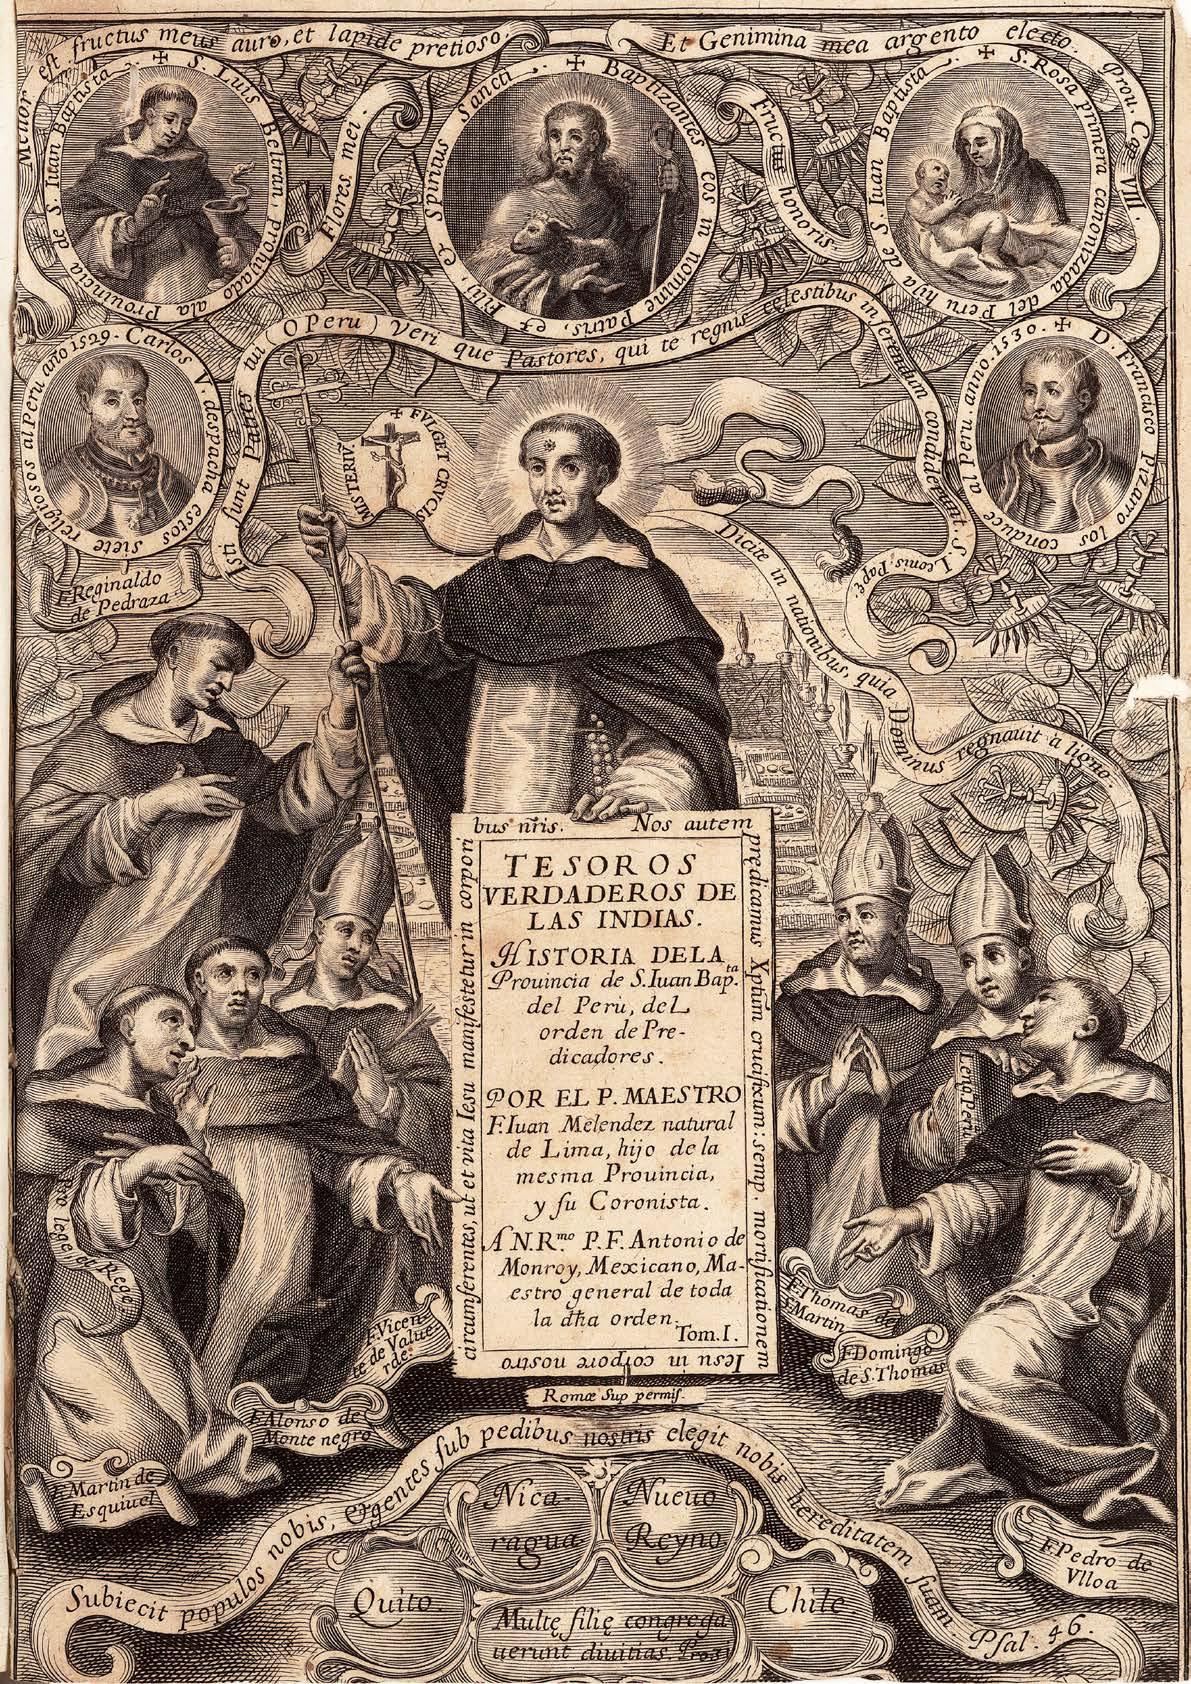 Melior est fructus meus auro, et lapide pretioso.
Et Genimina mea argento electo. Prou. Cap. VIII.
Flores mei.
Fructus honoris
✠ S. Luis Beltran, prohijado ala Prouincia de S. Iuan Baptista
✠ Baptizantes eos in nomine Patris, et Filii, et Spiritus Sancti
✠ S. Rosa primera canonizada del Peru hija de S. Iuan Baptista
Isti sunt Patres tui (O Peru) Veri que Pastores, qui te regnis celestibus inserendam condiderunt S. Leonis. Papæ
Carlos V. despacha estos siete religiosos al Peru año 1529.
✠ D. Francisco Pizarro los conduce al Peru. anno. 1530.
✠ FVLGET CRVCIS MISTERIV̄.
Dicite in nationibus, quia Dominus regnauit à ligno.
F. Reginaldo
de Pedraza
circumferentes, ut et vita Iesu manifestetur in corpori
bus nr̄is. Nos autem
predicamus Xptūm crucifixum: semp. mortificationem
Iesu in corpore nostro
TESOROS
VERDADEROS DE
LAS INDIAS.
HISTORIA DE LA
Prouincia de S. Iuan Bap.ta
del Perù, deL
orden de Pre-
dicadores.
POR EL P. MAESTRO
F. Iuan Mèlendez natural
de Lima, hijo de la
mesma Prouincia,
y su Coronista.
A N. R.mo P. F. Antonio de
Monroy, Mexicano, Ma-
estro general de toda
la dha orden.
Tom. I.
Romæ Sup permis.
Pro lege, et Rege
Leng. Peru.
F. Vicen-
te de Value
rde.
F. Alonso de
Monte negro
F. Martin de
Esquiuel
F. Thomas de
S. Martin
F. Domingo
de S. Thomas
F. Pedro de
Vlloa
Subiecit populos nobis, & gentes sub pedibus nostris elegit nobis hereditatem suam. Psal. 46.
Nica-
ragua
Nueuo
Reyno
Quito.
Chile
Multę filię congrega
uerunt diuitias. Pro